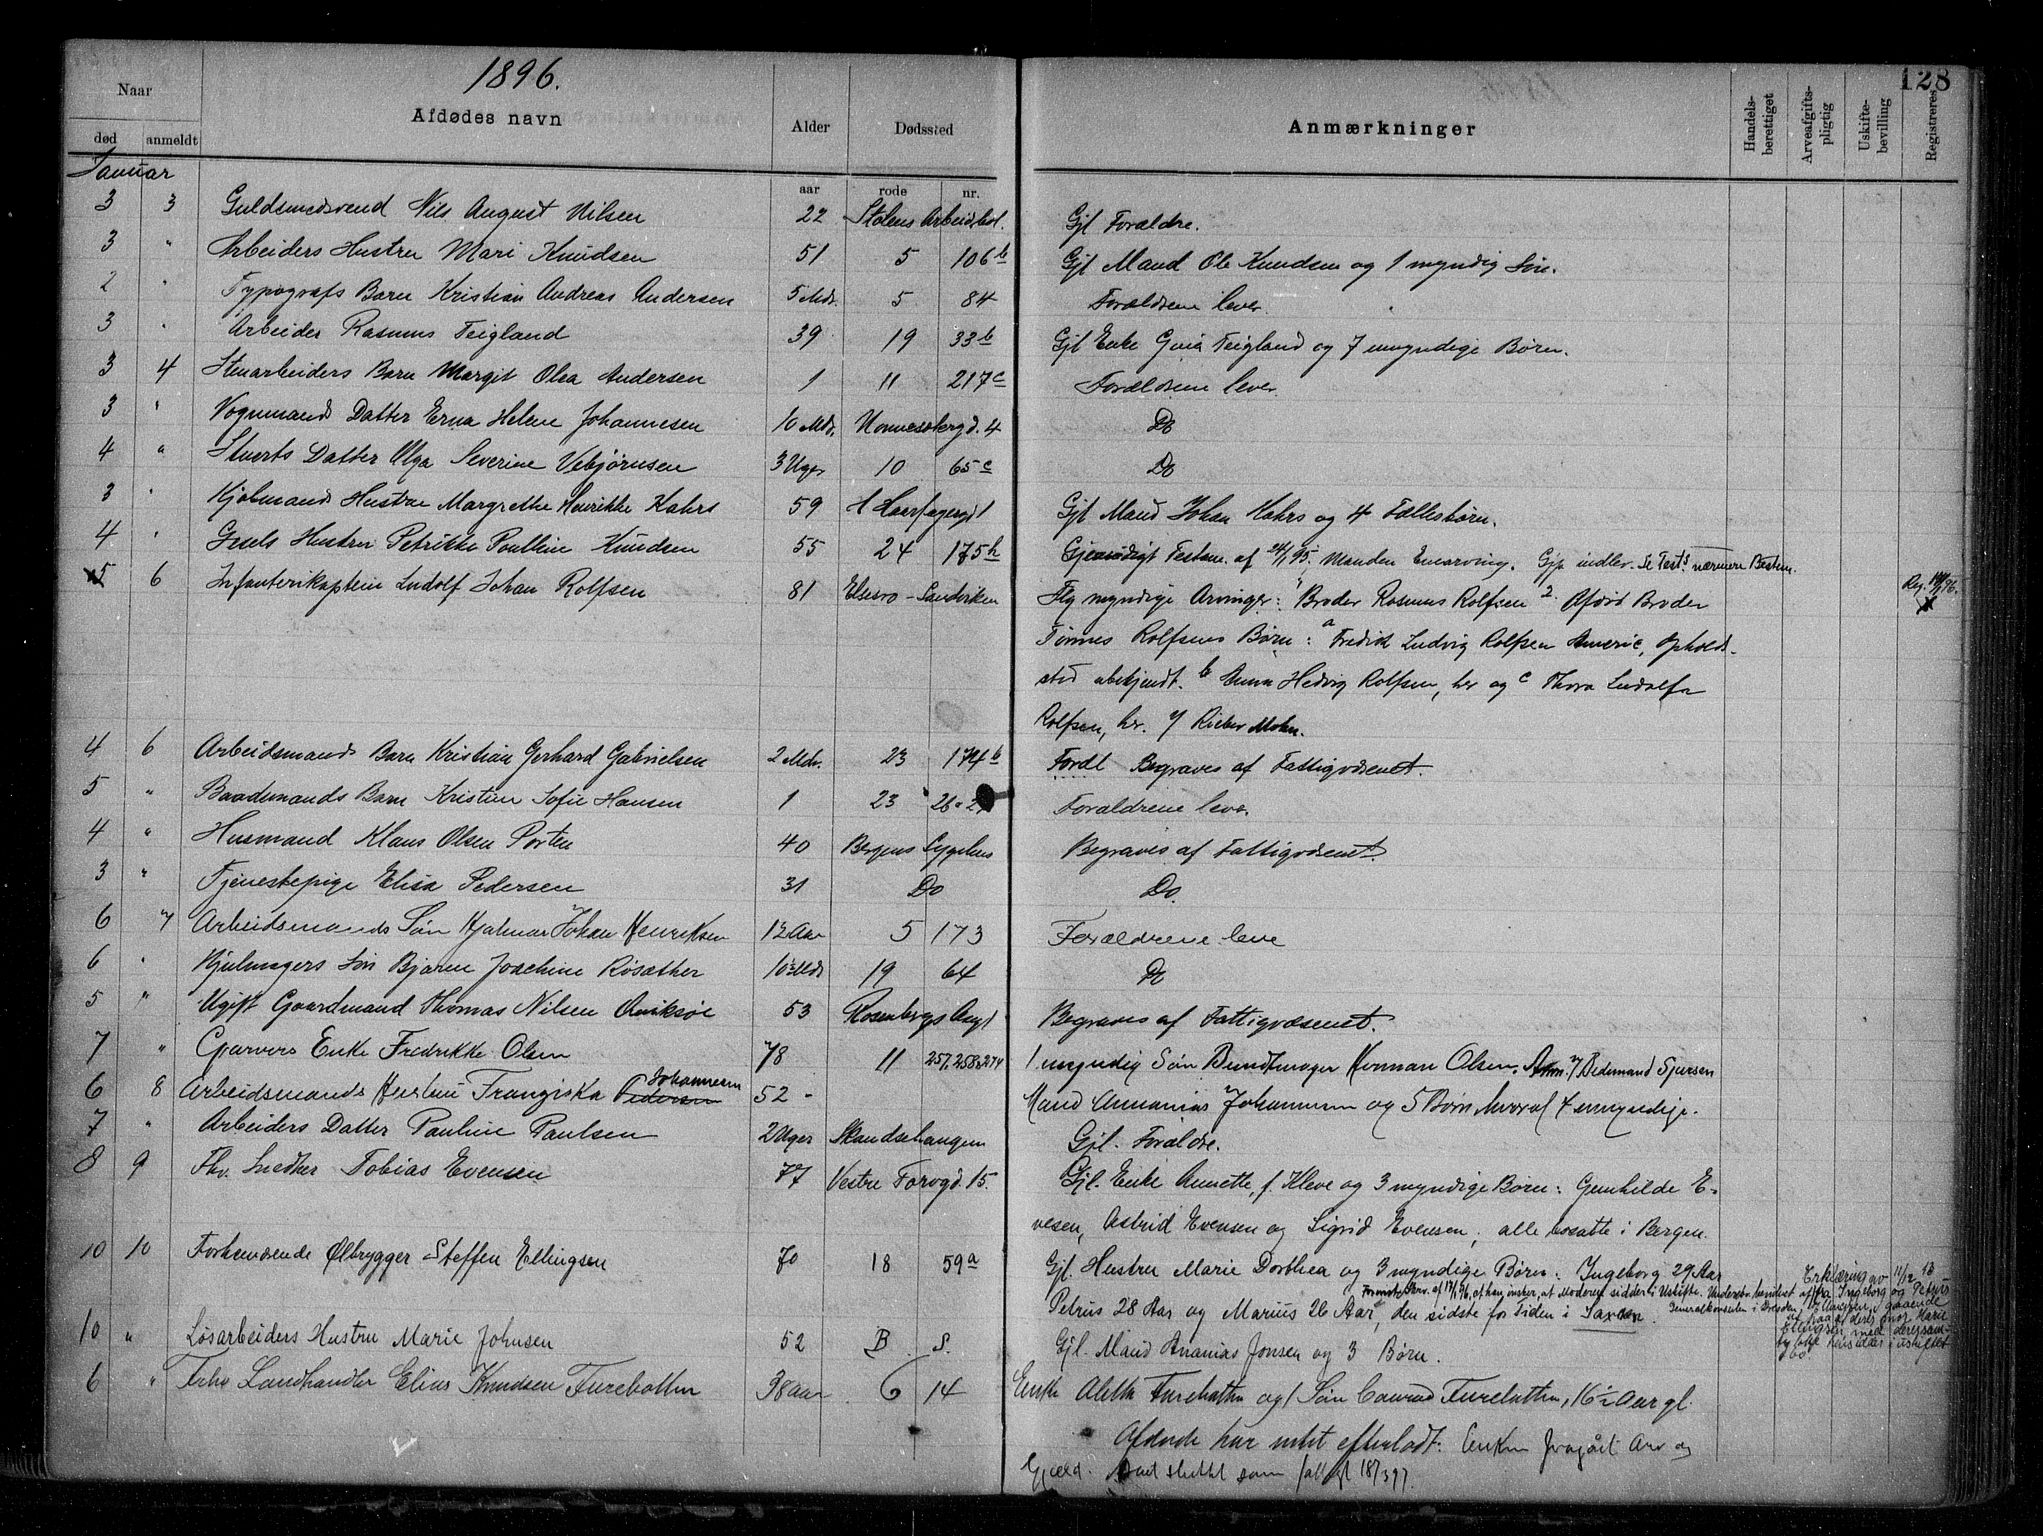 1896.
128
Naar
død
anmeldt
Afdødes navn
Alder
Dødssted
Anmærkninger
Handels-berettiget
Arveafgifts-pligtig
Uskifte-bevilling
Registreres
Januar
aar
rode
nr.
3 3 Guldsmedsvend Nils August Nilsen 22 Stolens Arbeidbol. Gjl Forældre.
3 " Arbeiders Hustru Mari Knudsen 51 5 106b Gjl Mand Ole Knudsen og 1 myndig Søn.
2 " Typografs Barn Kristian Andreas Andersen 5 Mdr. 5 84 Forældrene lever.
3 " Arbeider Rasmus Teigland 39 19 33b Gjl Enke Guia Teigland og 7 umyndige Børn.
3 4 Stenarbeiders Barn Margit Olea Andersen 1 11 217c Forældrene lever.
3 " Vognmands Datter Erna Helene Johannesen 10 Mdr. Nonnesætergd. 4 Do
4 " Stuerts Datter Olga Severine Vebjørnsen 3 Uger 10 65c Do
3 " Kjøbmands Hustru Margrethe Henrikke Kahrs 59 H Haarfagergd 1 Gjl Mand Johan Kahrs og 4 Fællesbørn.
4 " Gesels Hustru Petrikke Pouline Knudsen 55 24 175h Gjensidigt Testam. af 24/1 95. Manden Enearving. Gjp indlev. Se Tests nærmere Bestem.
5 6 Infanterikaptein Ludolf Johan Rolfsen 81 Elsesro - Sandviken Flg myndige Arvinger: 1 Broder Rasmus Rolfsen 2. Afdød Broder
Tønnes Rolfsens Børn: a Fredrik Ludvig Rolfsen Americ, Opholds-
sted ubekjendt. b Anna Hedvig Rolfsen, her og c Thora Ludolfa
Rolfsen, her. v/ Rieber Mohn.
4 6 Arbeidsmands Barn Kristian Gerhard Gabrielsen 2 Mdr. 23 174b Fordl Begraves af Fattigvæsenet.
5 " Baadsmands Barn Kristine Sofie Hansen 1 23 26 a 27 Forældrene leve.
4 " Husmand Klaus Olsen Porten 40 Bergens Sygehus Begraves af Fattigvæsenet
3 " Tjenestepige Elisa Pedersen 31 Do Do.
6 7 Arbeidsmands Søn Hjalmar Johan Henriksen 1½ Aar 5 173 Forældrene leve
6 " Hjulmagers Søn Bjarne Joachim Røsæther 10½ Mdr 19 64 Do
5 " Ugift Gaardmand Thomas Nilsen Kviksøe 53 Rosenbergs Asyl Begraves af Fattigvæsenet.
7 " Garvers Enke Fredrikke Olsen 78 11 257, 258 a 274 1 myndig Søn Bundtmager Herman Olsen. Anm. v/ Bedemand Sjursen
6 8 Arbeidsmands Hustru Franziska Pedersen Johannesen 52 - Mand Annanias Johannesen og 5 Børn hvoraf 4 umyndige.
7 " Arbeiders Datter Pauline Paulsen 2 Uger Skandsehaugen Gjl. Forældre.
8 9 Fhv. Snedker Tobias Evensen 77 Vestre Torvgd. 15. Gjl. Enke Annette, f. Kleve og 3 myndige Børn: Gunhilde E-
vesen, Astrid Evensen og Sigrid Evensen, alle bosatte i Bergen.
10 10 Forhenværende Ølbrygger Steffen Ellingsen 70 18 59a Gjl. Hustru Marie Dorthea og 3 myndige Børn: Ingeborg 29 Aar
Petrus 28 Aar og Marius 26 Aar, den sidste for Tiden i Saxen.
10 " Løsarbeiders Hustru Marie Johnsen 52 B S. Gjl. Mand Ananias Jonsen og 3 Børn.
6 " Fhv Landhandler Elias Knudsen Furebotten 38 aar 6 14 Enke Aletta Furebotten og 1 Søn Conrad Furebotten, 16½ Aar gl.
Afdøde har intet efterladt. Enken fragået Arv og
Gjæld. Boet sluttet som fallit 18/3 97.